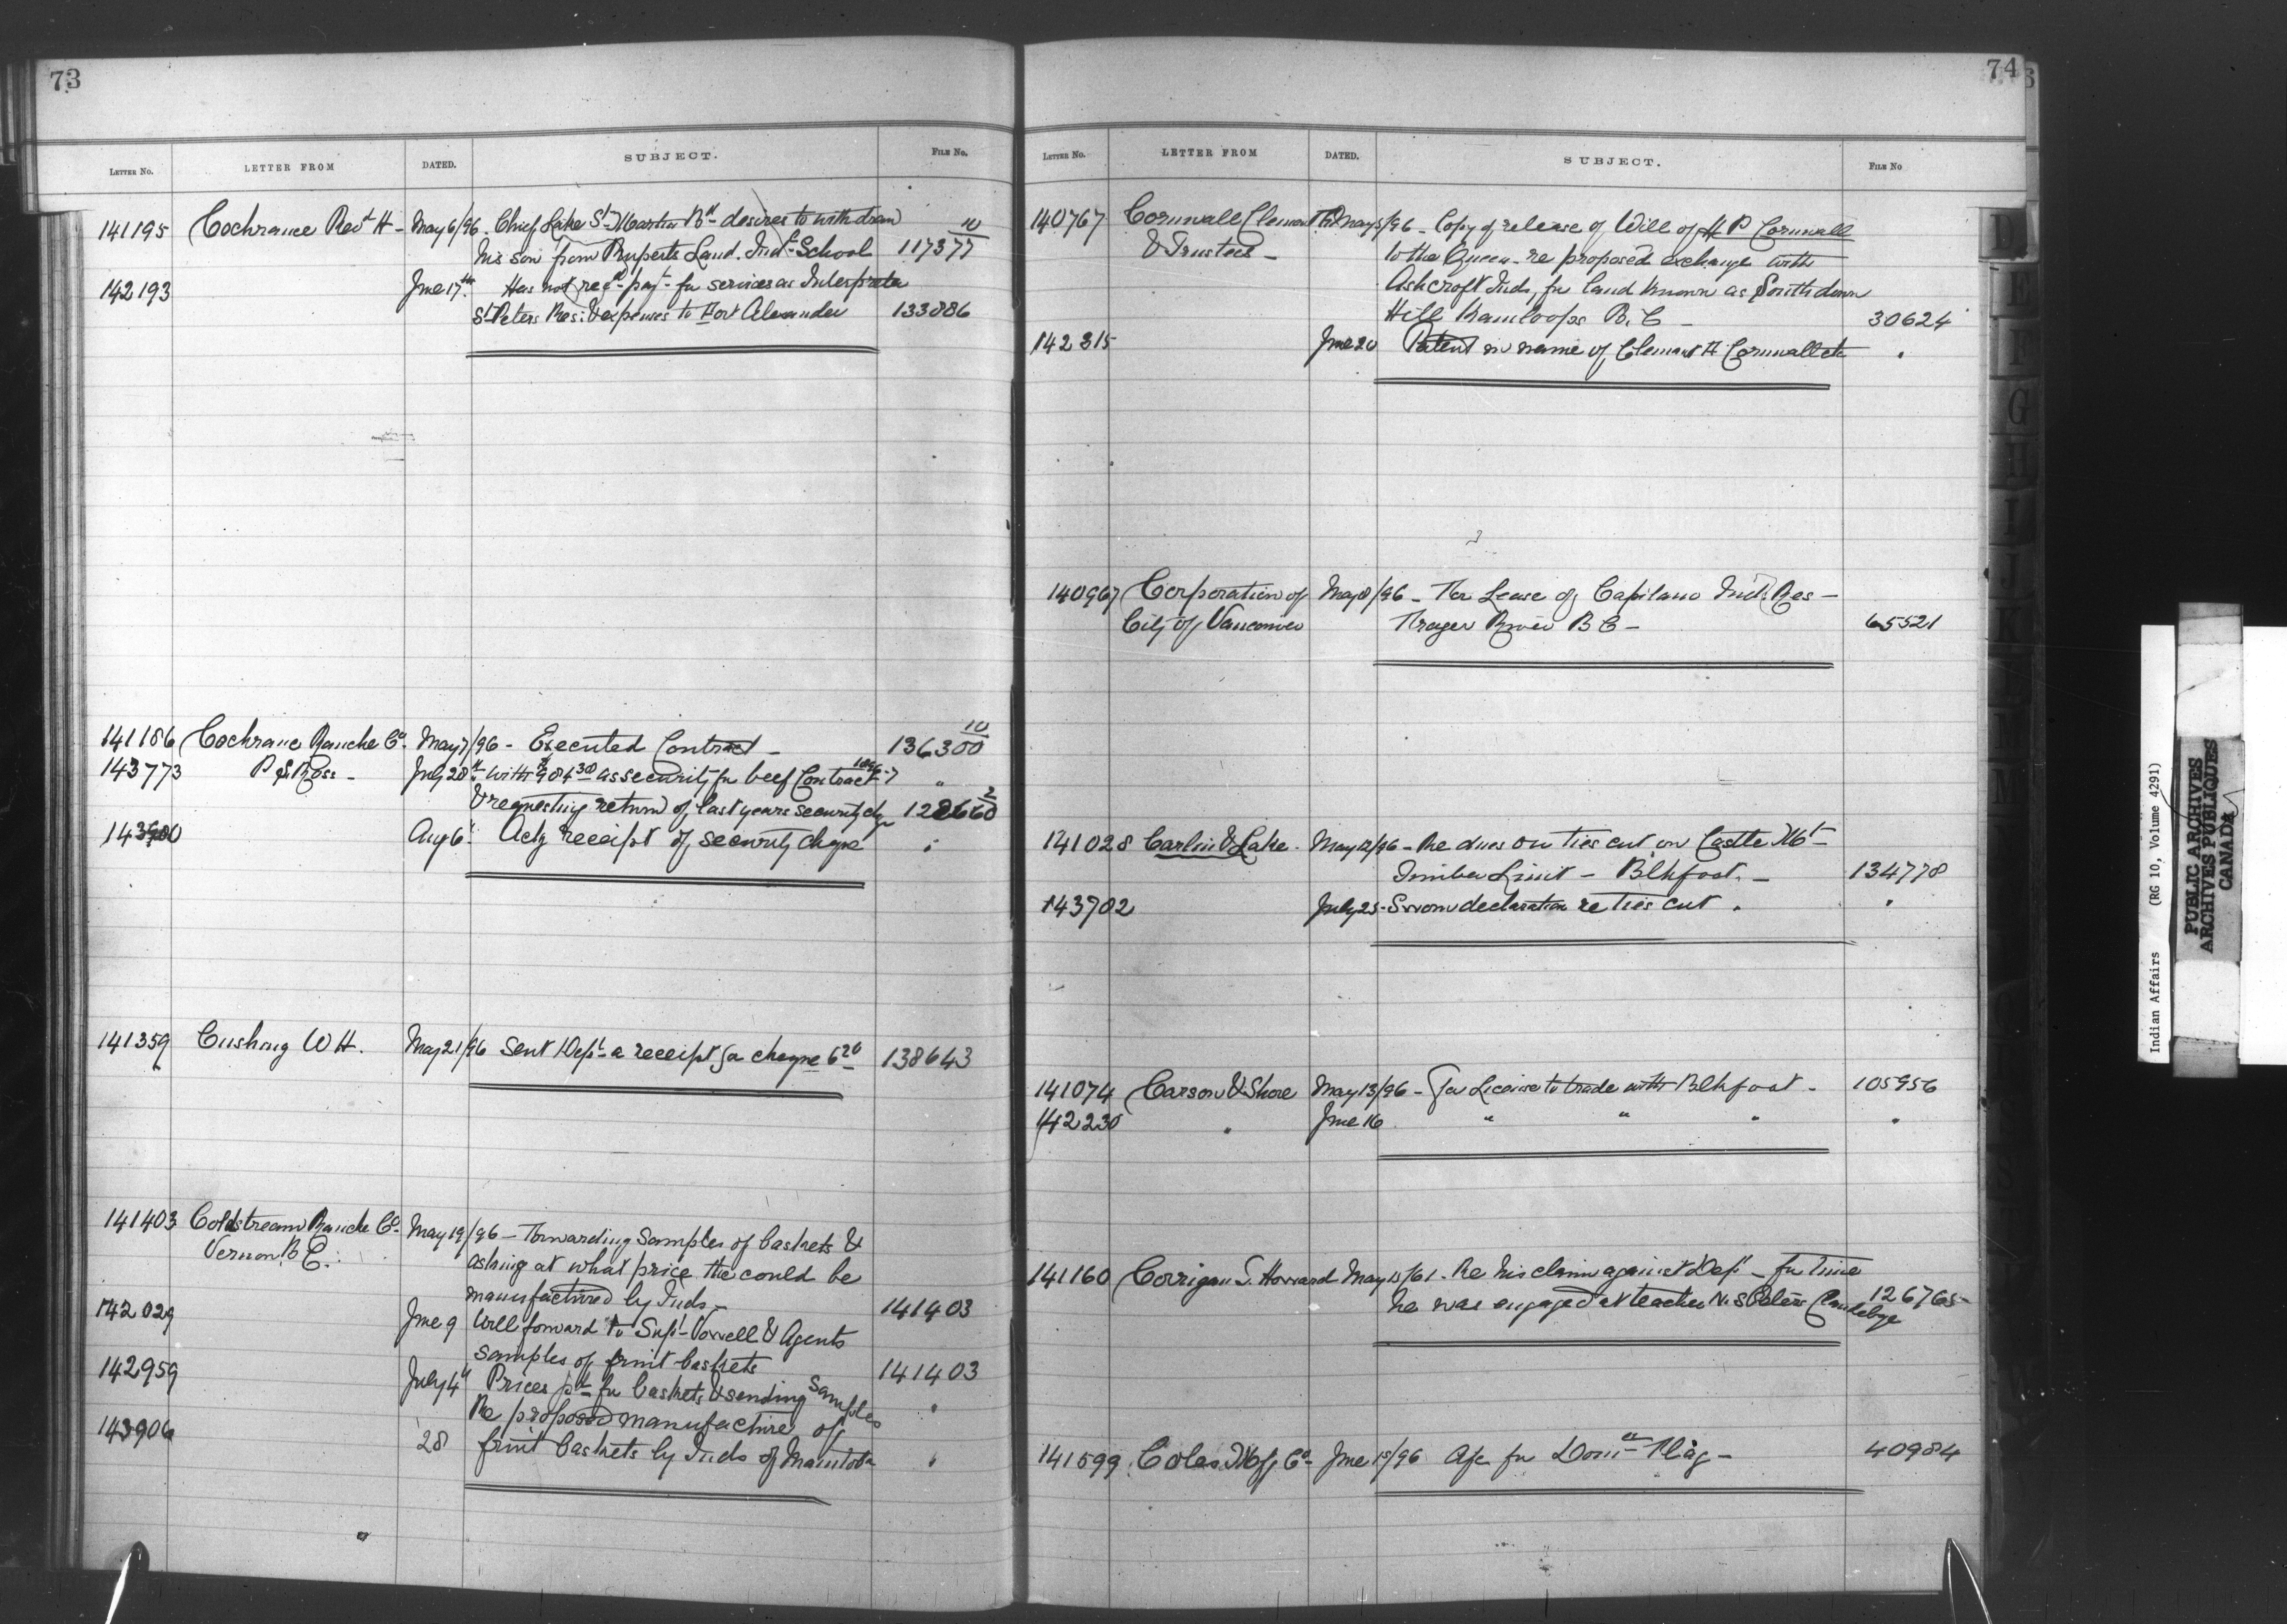 73
LETTER No. LETTER FROM DATED. SUBJECT. FILE No.
141195 Cochrane Revd H - May 6/96. Chief Lake St Martin Bd desires to withdraw 10
his son from Ruperts Land. Indl School 117377
142193 June 17th Has not recd payt for services as Interpreter
St Peters Res: & expenses to Fort Alexander 133886
141186 Cochrane Ranche Co. May 7/96 - Executed Contract - 136300 10
143773 July 28th with $984.30 as security for beef Contract 1896-7 "
& requesting return of last years security chq 128660 2
Aug 6" Ackg receipt of security cheque "
141359 Cushing W H. May 21/96 Sent Dept a receipt for cheque 138643
141403 Coldstream Ranche Co. May 19/96 - Forwarding Samples of baskets &
Vernon. B.C. asking at what price the could be
manufactured by Inds - 141403
142029 June 9 Will forward to Supt Vowell & Agents
samples of fruit baskets 141403
142959 July 4" Prices pd for baskets & sending samples "
143906 28 Re proposed manufacture of
fruit baskets by Inds of Manitoba "
74
LETTER No. LETTER FROM DATED. SUBJECT. FILE No
140767 Cornwall Clement H May 5/96 - Copy of release of Will of H P Cornwall
& Trustees - to the Queen - re proposed exchange with
Ashcroft Inds, for land known as South down
Hill Kamloops B.C - 30624
142315 June 20 Patent in name of Clement H Cornwall etc "
140967 Corporation of May 8/96 - For Lease of Capilano Ind. Res -
City of Vancouver Frazer River B C - 65521
141028 Carlin & Lake - May 12/96 - Re dues on ties cut on Castle Mt -
Timber Limit - Blkfoot. - 134778
143702 July 25 - Sworn declaration re ties cut. "
141074 Carson & Shore May 13/96 - For License to trade with Blkfoot - 105956
142230 " June 16 " " " "
141160 Corrigan S. Howard May 15/61. Re his claim against Dept - for time
he was engaged at teacher N. St Peters 126765
141599 Coles Mfg Co - June 1st/96 Apc for Domn Flag - 40984
Indian Affairs (RG 10, Volume 4291)
PUBLIC ARCHIVES
ARCHIVES PUBLIQUES
CANADA
D
E
F
G
H
I
J
K
L
M